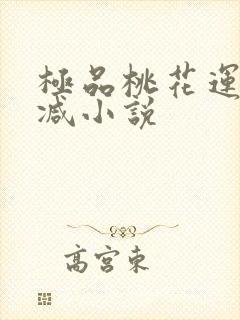 極品桃花運
减小說
高宮東